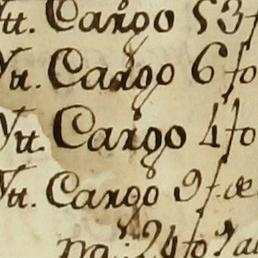 Ytt. Cargo 53 f
Ytt. Cargo 6 fo
Ytt. Cargo 4 fo
Ytt. Cargo 9 f. de
24 fo 7